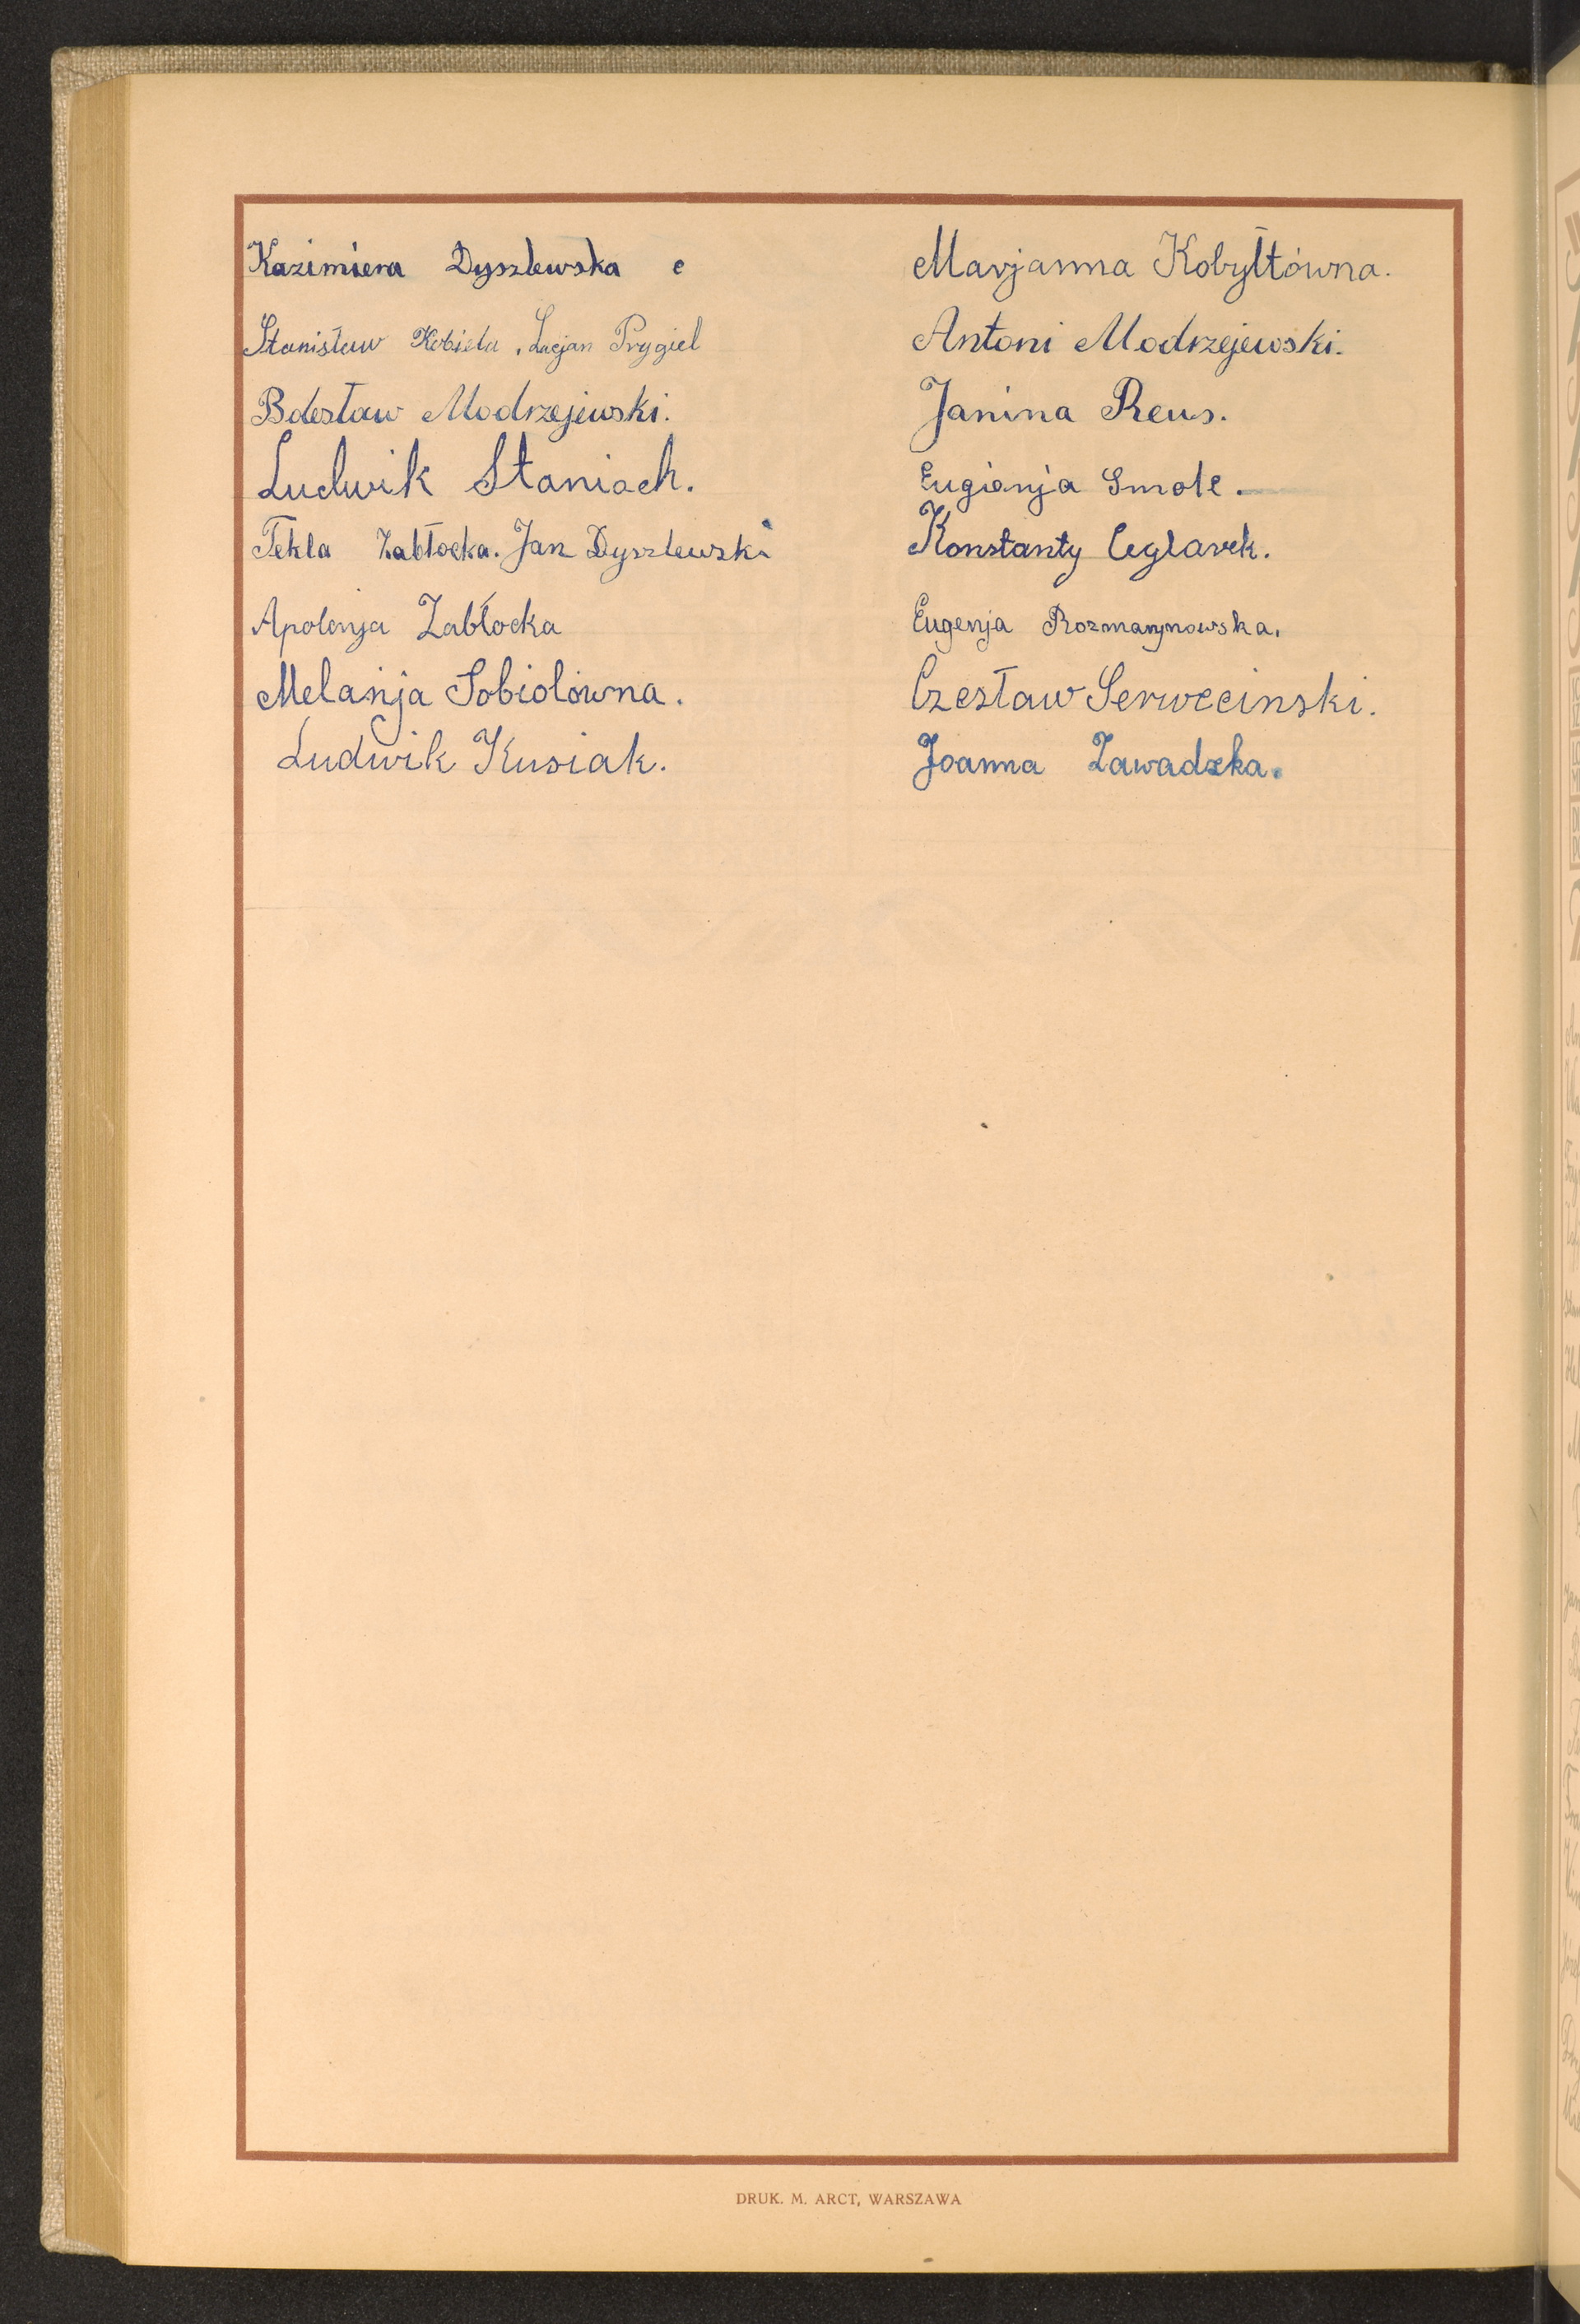 Kazimiera Dyszlewska e
Stanisław Kobiela, Lucjan Prygiel
Bolesław Modrzejewski.
Ludwik Staniach.
Tekla Zabłocka. Jan Dyszlewski
Apolonja Zabłocka
Melanja Sobiolówna.
Ludwik Kusiak.
Marjanna Kobyłtówna.
Antoni Modrzejewski.
Janina Reus.
Eugienja Smole.
Konstanty Ceglarek.
Eugenja Rozmarynowska.
Czesław Serwecinski.
Joanna Zawadzka.
DRUK. M. ARCT, WARSZAWA